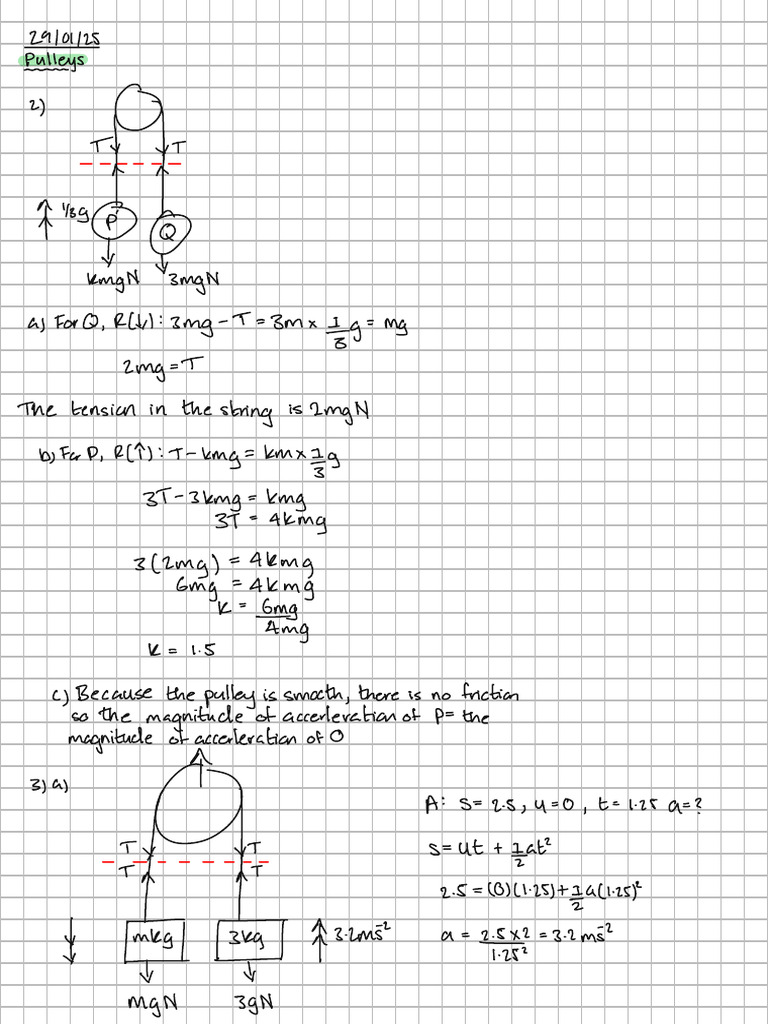 29/01/25
Pulleys
2)
T T
1/3g P Q
kmgN 3mgN
a) For Q, R(↓): 3mg - T = 3m × 1/3 g = mg
2mg = T
The tension in the string is 2mgN
b) For P, R(↑): T - kmg = km × 1/3 g
3T - 3kmg = kmg
3T = 4kmg
3(2mg) = 4kmg
6mg = 4kmg
k = 6mg/4mg
k = 1.5
c) Because the pulley is smooth, there is no friction
so the magnitude of accerleration of P = the
magnitude of accerleration of Q
3) a)
T T
T T
mkg 3kg 3.2ms⁻²
mgN 3gN
A: s = 2.5, u = 0, t = 1.25 a = ?
s = ut + 1/2 at²
2.5 = (0)(1.25) + 1/2 a(1.25)²
a = 2.5 × 2/1.25² = 3.2ms⁻²